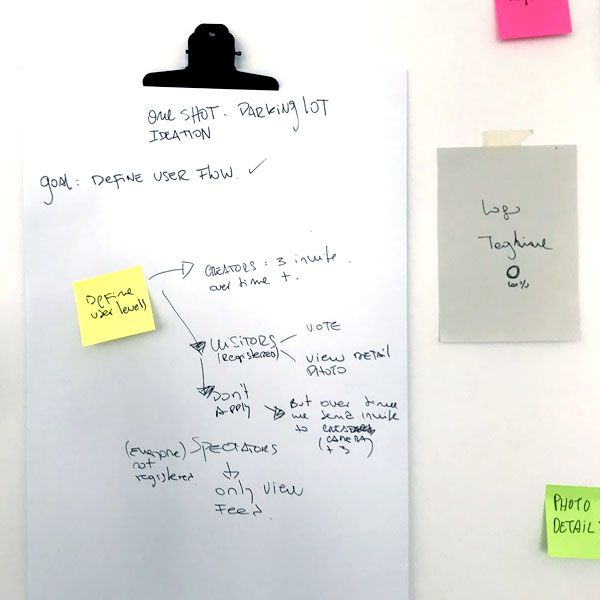 One SHOT. PARKING LOT
IDEATION
goal: DEFINE USER FLOW. ✓
DEFINE
user levels
CREATORS: 3 invite.
over time +.
VISITORS
(Registered)
VOTE
VIEW DETAIL
PHOTO
DON'T
APPLY
But over time
we send invite
to CREATORS
(CAMERA)
+ 3
(Everyone)
not
registered.
SPECTATORS
only view
Feed.
Logo
Tagline
PHOTO
DETAIL